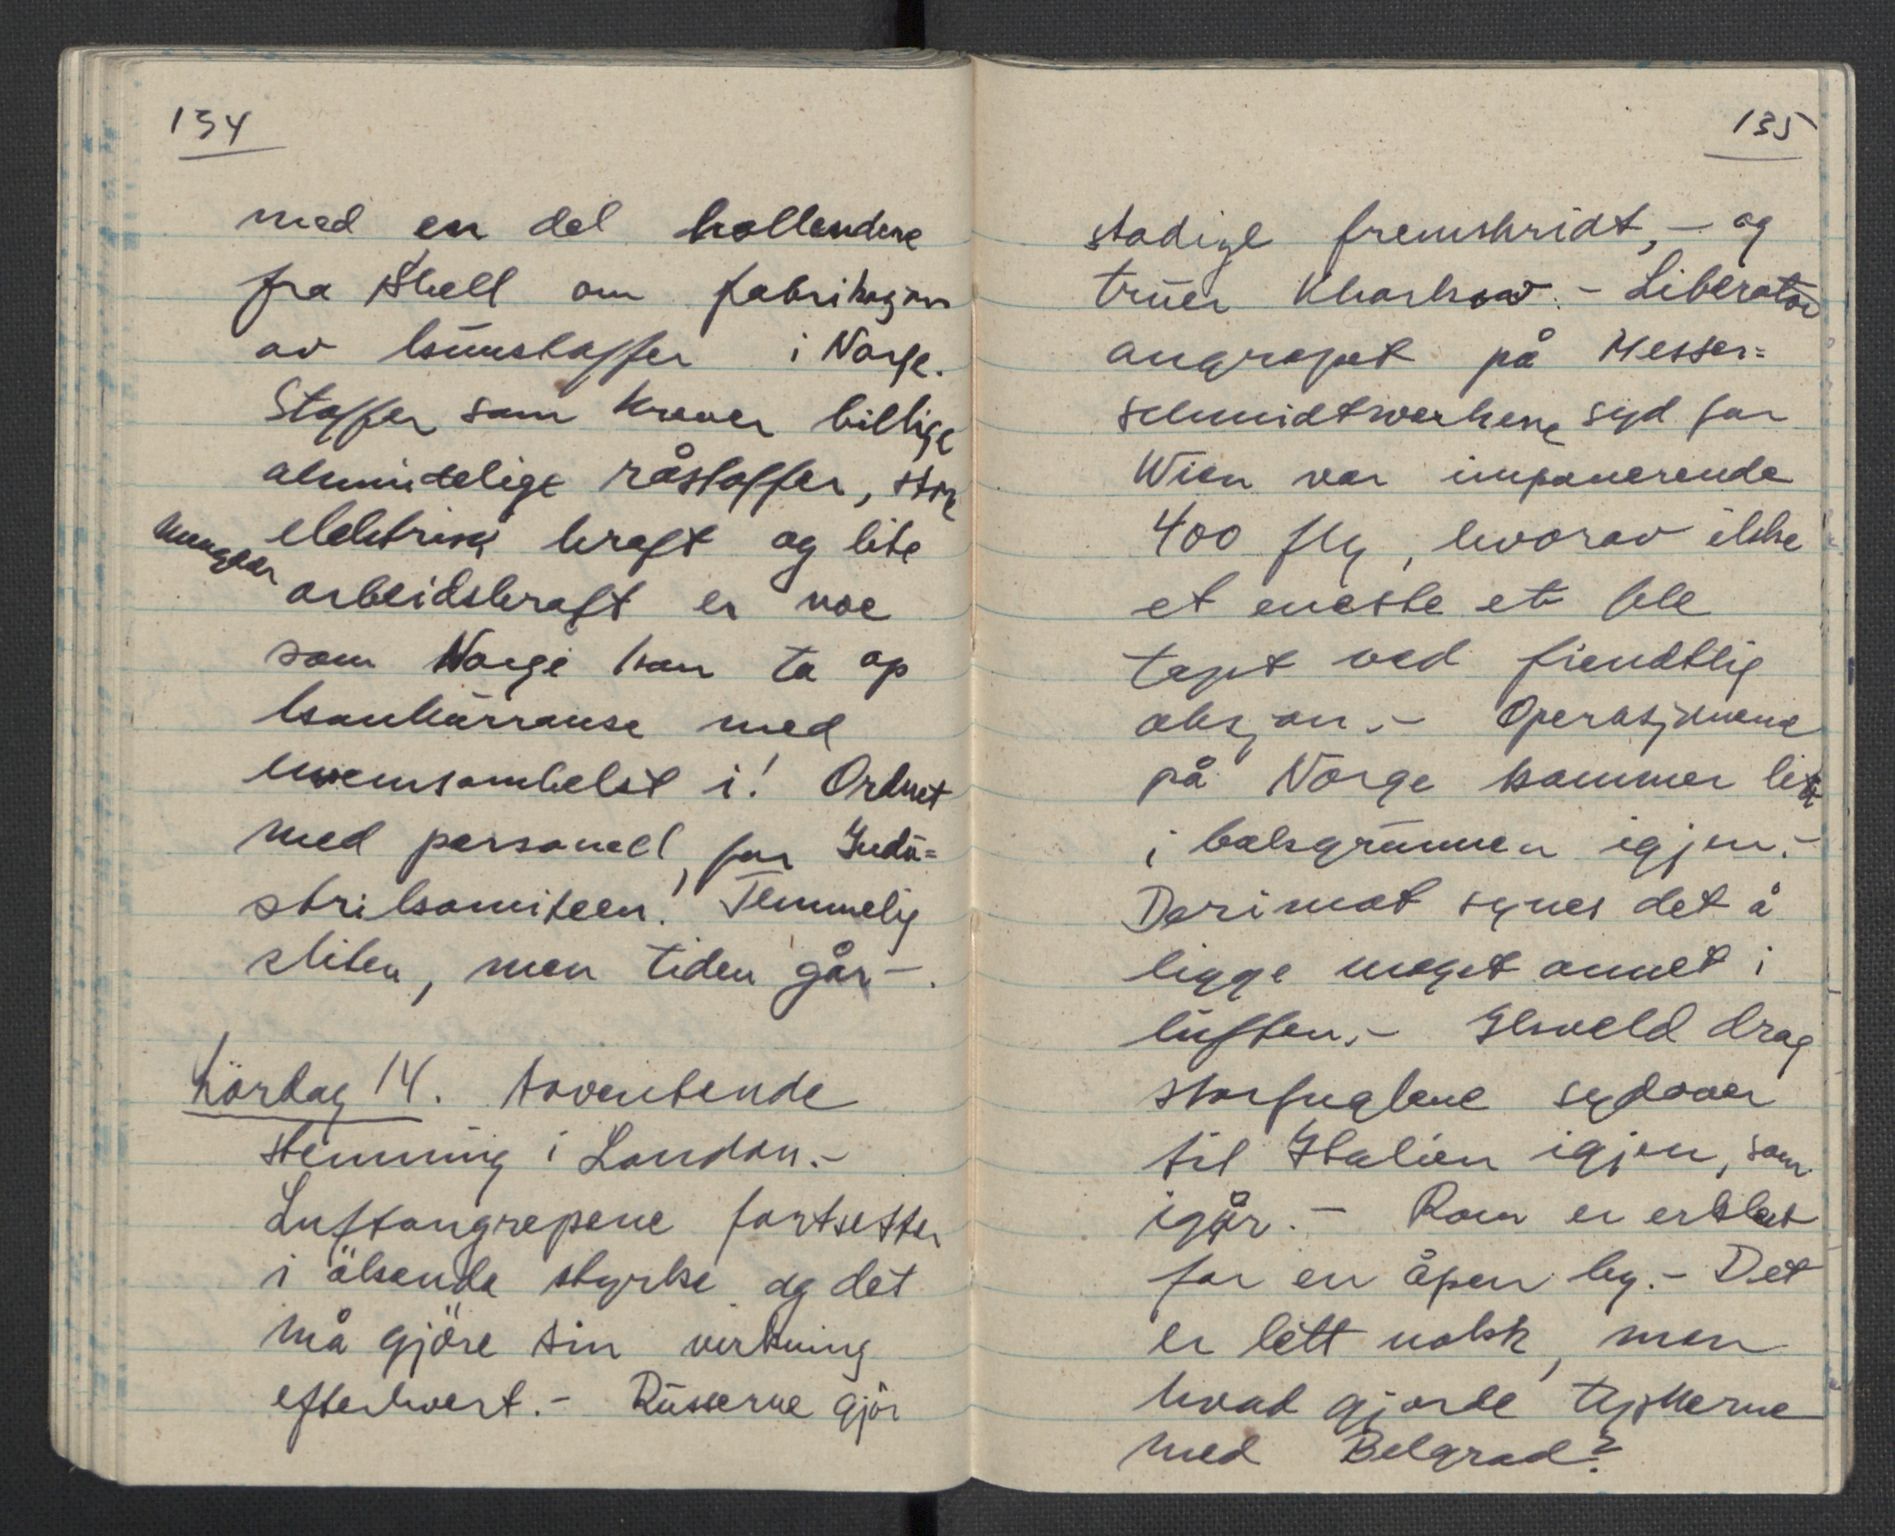 134
med en del hollendere
fra Shell om fabrikasjon
av kunstoffer i Norge.
Stoffer som krever billige
alminnelige råstoffer, store
mengder elektrisk kraft og lite
arbeidskraft er noe
som Norge kan ta op
konkurranse med
hvemsomhelst i! Ordnet
med personell, for Indu=
strikomiteen! Temmelig
sliten, men tiden går –.
Lördag 14. Avventende
stemning i London. –
Luftangrepene fortsetter
i ökende styrke og det
må gjöre sin virkning
efterhvert. – Russerne gjör
135
stadige fremskridt, – og
truer Kharkow. – Liberator
angrepet på Messer=
schmidtwerkene syd for
Wien var imponerende
400 fly, hvorav ikke
et eneste et ble
tapt ved fiendtlig
aksjon. – Operasjonene
på Norge kommer litt
i bakgrunnen igjen. –
Derimot synes det å
ligge meget annet i
luften. – Ikveld drog
storfuglene sydover
til Italien igjen, som
igår. – Rom er erklært
for en åpen by. – Det
er lett nokk, men
hvad gjorde tyskerne
med Belgrad?